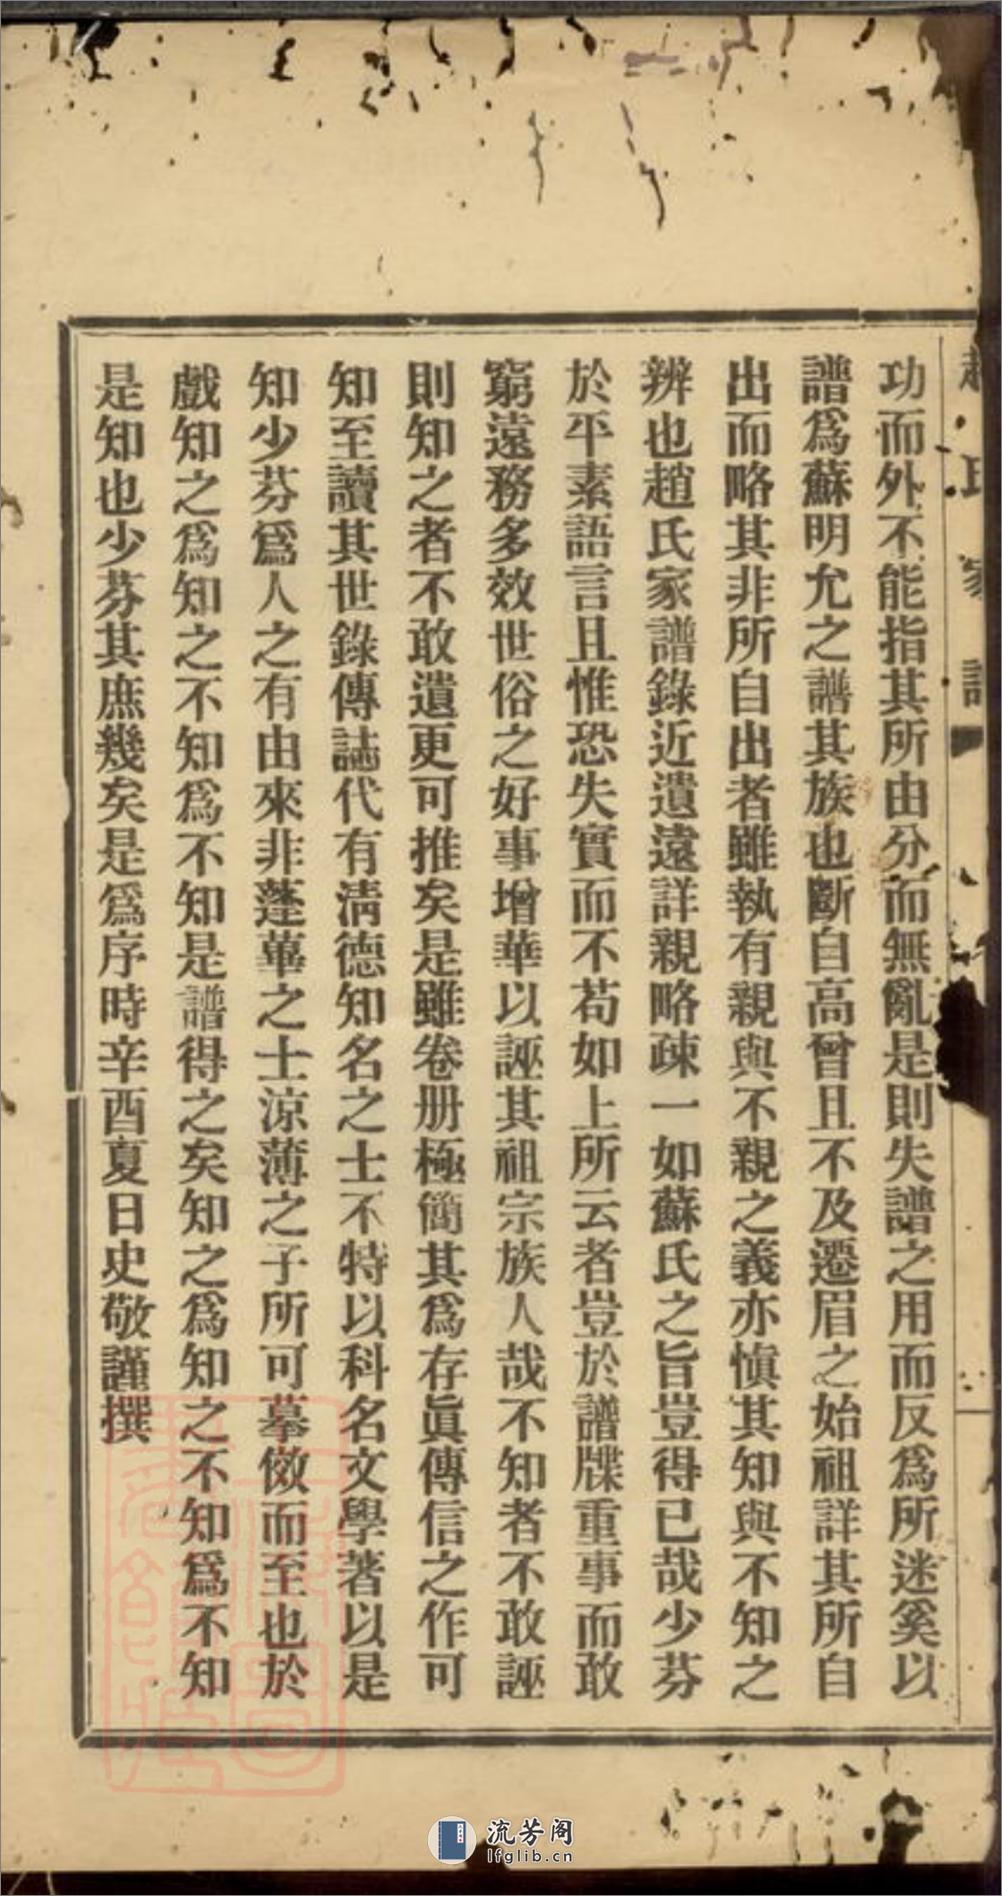 趙氏家譜
一
功而外不能指其所由分而無亂是則失譜之用而反爲所迷奚以
譜爲蘇明允之譜其族也斷自高曾且不及遷眉之始祖詳其所自
出而略其非所自出者雖執有親與不親之義亦愼其知與不知之
辨也趙氏家譜錄近遺遠詳親略疎一如蘇氏之旨豈得已哉少芬
於平素語言且惟恐失實而不苟如上所云者豈於譜牒重事而敢
窮遠務多效世俗之好事增華以誣其祖宗族人哉不知者不敢誣
則知之者不敢遺更可推矣是雖卷册極簡其爲存眞傳信之作可
知至讀其世錄傳誌代有淸德知名之士不特以科名文學著以是
知少芬爲人之有由來非蓬蓽之士涼薄之子所可摹倣而至也於
戲知之爲知之不知爲不知是譜得之矣知之爲知之不知爲不知
是知也少芬其庶幾矣是爲序時辛酉夏日史敬謹撰
流芳阁
lfglib.cn